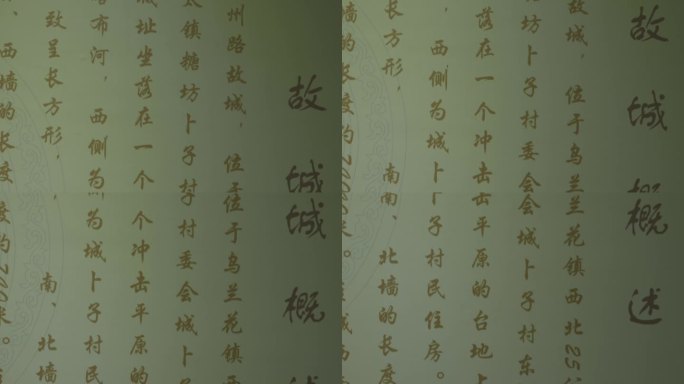 故城城概
州路故城，位位于乌兰花镇
太镇糖坊卜子村村委会城卜
城址坐落在一个个冲击平原的
布河，西侧为为城卜子村民
致呈长方形，南、北墙
、西墙的长度
故城概概述
故城，位于乌兰兰花镇西北25
坊卜子村委会会城卜子村东
落在一个冲击击平原的台地上
，西侧为城卜卜子村民住房。
长方形，南南、北墙的长度
墙的长度约200米。